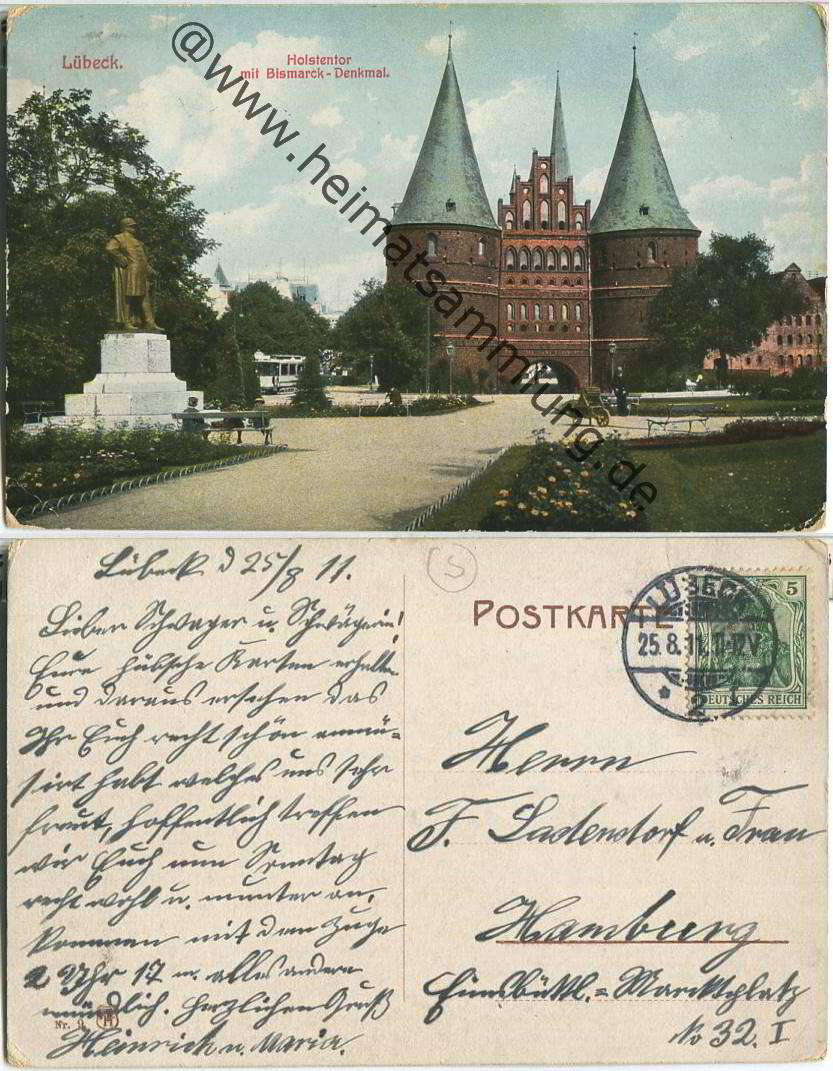 Lübeck.
Holstentor
mit Bismarck-Denkmal.
@www.heimatsammlung.de
Lübeck d 25/8 11.
Lieber Schwager u. Schwägerin!
Eure hübsche Karten erhalten
und daraus ersehen das
Ihr Euch recht schön ammü-
sirt habt welches uns sehr
freut, hoffentlich treffen
wir Euch nun Sonntag
recht wohl u. munter an,
kommen mit dem Zuge
2 Uhr 17 m. alles andere
mündlich. Herzlichen Gruß
Heinrich u. Maria.
Nr. 9
S
POSTKARTE
LÜBECK
25.8.11.11-12V
* 2 1
5
DEUTSCHES REICH
Herrn
F. Ladendorf u. Frau
Hamburg
Eimsbüttl.=Marktplatz
No 32. I